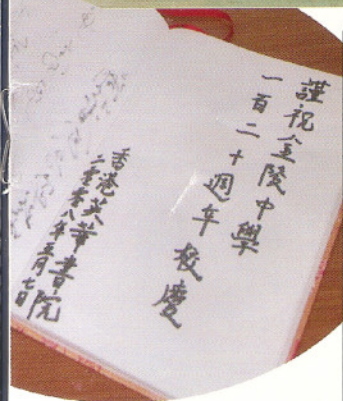 謹祝金陵中學
一百二十週年校慶
香港英華書院
二零零八年五月七日